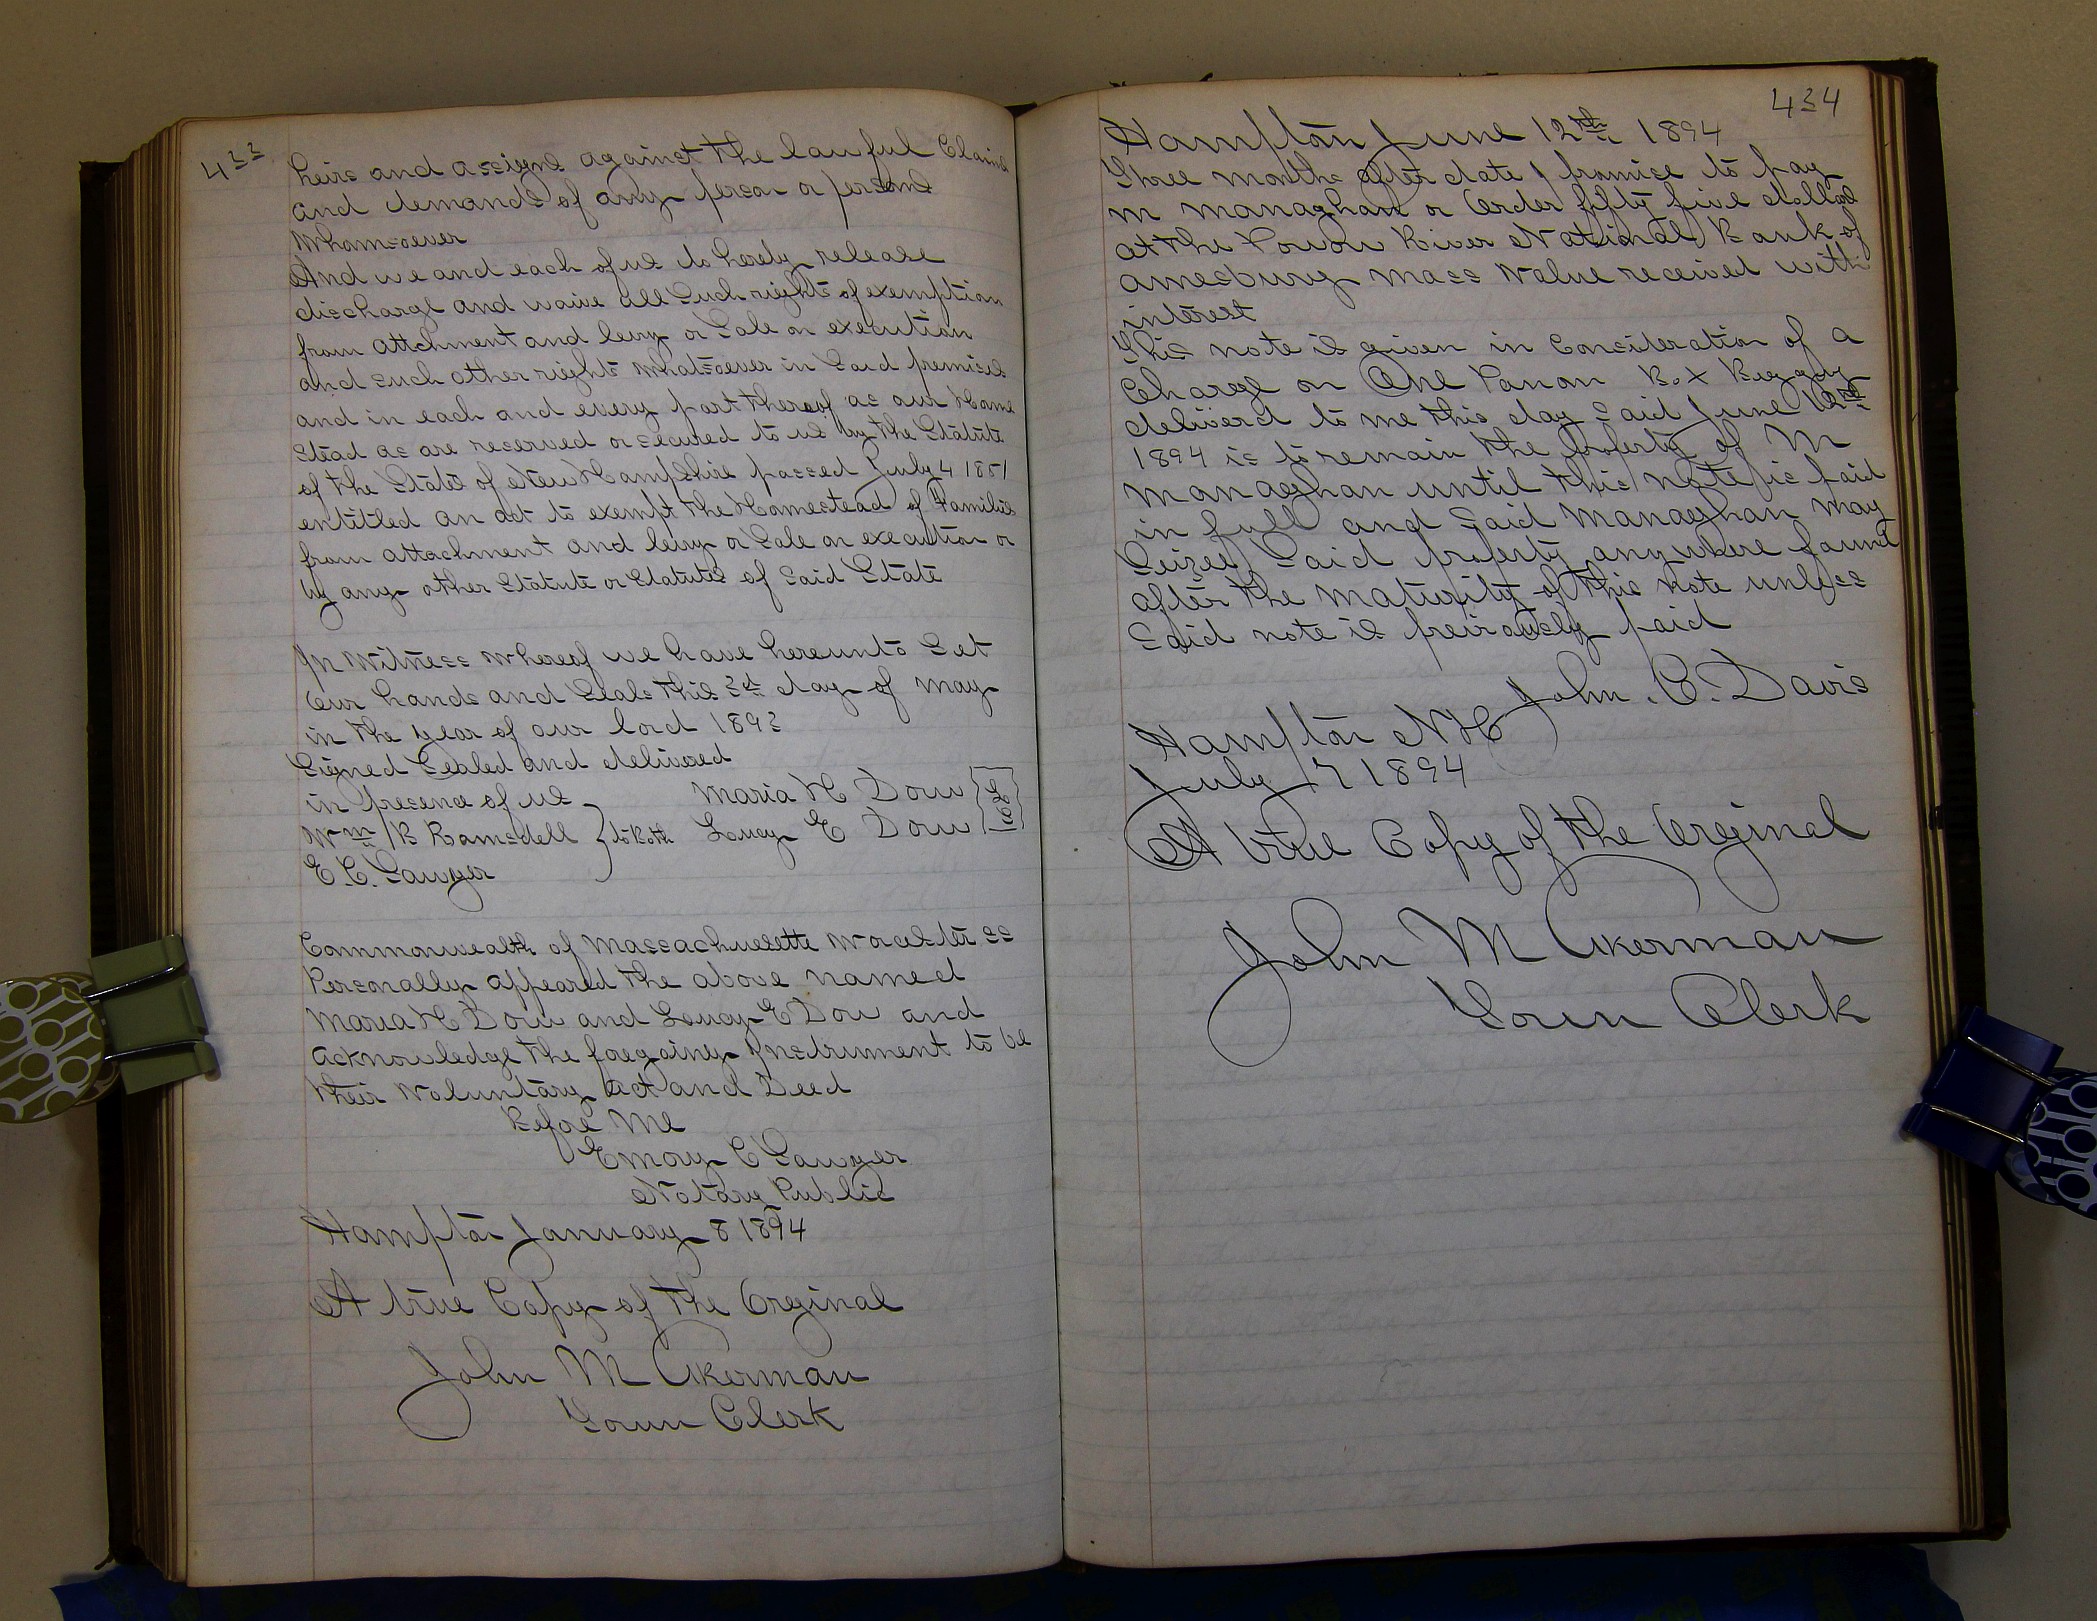 433
heirs and assigns against the lawful Claims
and demands of any person or persons
Whomsoever
And we and each of us do hereby release
discharge and waive all Such rights of exemption
from attchment and levy or Sale on execution
and such other rights Whatsoever in Said premises
and in each and every part thereof as our Home
Stead as are reserved or secured to us by the Statute
of the State of New Hampshire passed July 4 1851
entitled an act to exempt the Homestead of Families
from attachment and levy or Sale on execution or
by any other Statute or Statutes of Said State
In Witness Whereof we have hereunto Set
Our hands and Seals this 3d day of May
in the year of our lord 1893
Signed Sealed and delivered
in presence of us
Maria H Dow
Wm B Ramsdell } to Both Lucy E Dow
E. C. Sawyer
Commonwealth of Massachusetts Worcester ss
Personally appeared the above named
Maria H Dow and Lucy E Dow and
acknowledge the foregoing Instrument to be
their Voluntary act and Deed
Before Me
Emory C Sawyer
Notary Public
Hampton January 8 1894
A true Copy of the Orginal
John M Akerman
Town Clerk
434
Hampton June 12th 1894
Three months after date I promise to pay
M Managhan or Order fifty five dollars
at the Powow River National Bank of
Amesbury Mass Value received with
interest
This note is given in Consideration of a
Charge on One Box Buggy
delivered to me this day Said June
1894 is to remain the property of M
Managhan until this note is paid
in full and Said Managhan may
Seize Said property anywhere found
after the maturity of this note unless
Said note is preiviously paid
John. C. Davis
Hampton NH
July 17 1894
A true Copy of the Orginal
John M Akerman
Town Clerk